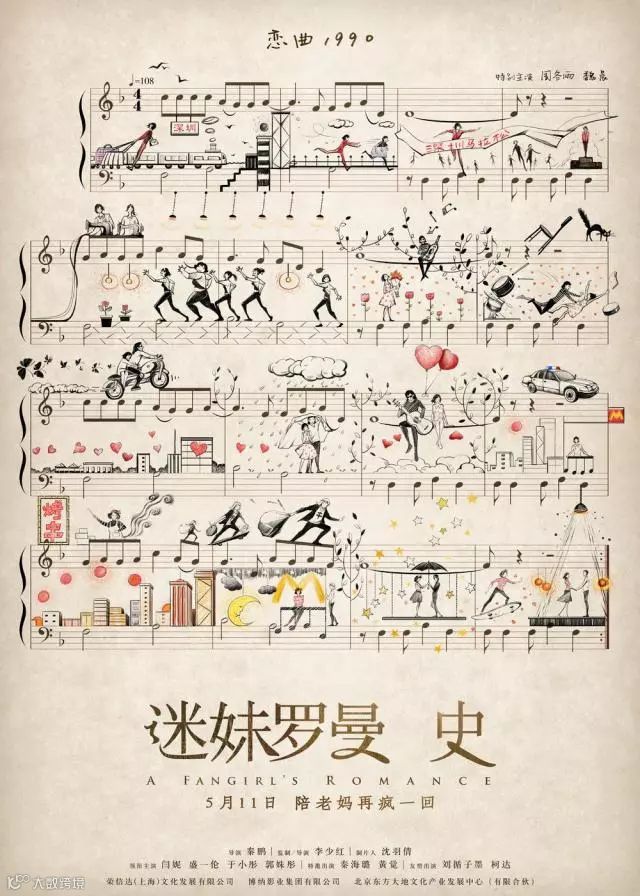 恋曲1990
特别主演 周冬雨 魏晨
♩=108
深圳
深圳马拉松
M
烤串
M
迷妹罗曼 史
A FANGIRL'S ROMANCE
5月11日 陪老妈再疯一回
导演 秦鹏 | 监制/导演 李少红 | 制片人 沈羽倩
领衔主演 闫妮 盛一伦 于小彤 郭姝彤 | 特邀出演 秦海璐 黄觉 | 友情出演 刘循子墨 柯达
荣信达(上海)文化发展有限公司 博纳影业集团有限公司 北京东方大地文化产业发展中心(有限合伙)
大数跨境